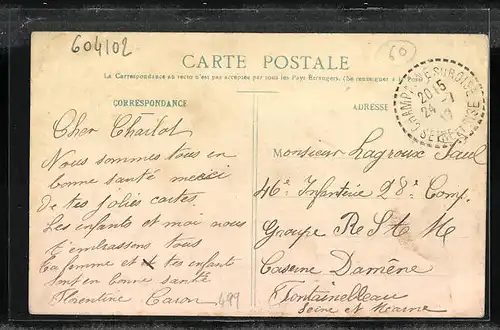 604102
60
CARTE POSTALE
La Correspondance au recto n'est pas acceptée par tous les Pays Étrangers. (Se renseigner à la Poste)
CORRESPONDANCE
ADRESSE
CHAMPAGNE SUR OISE
20 15
24 - 7
SEINE ET OISE
Cher Charlot
Nous sommes tous en
bonne santé merci
de tes jolies cartes.
Les enfants et moi nous
t'embrassons tous
Ta femme et tes enfants
sont en bonne santé
Florentine Caron
499
Monsieur Lagroux Paul
46e Infanterie 28e Comp.
Groupe R S M
Caserne Damême
Fontainebleau
Seine et Marne